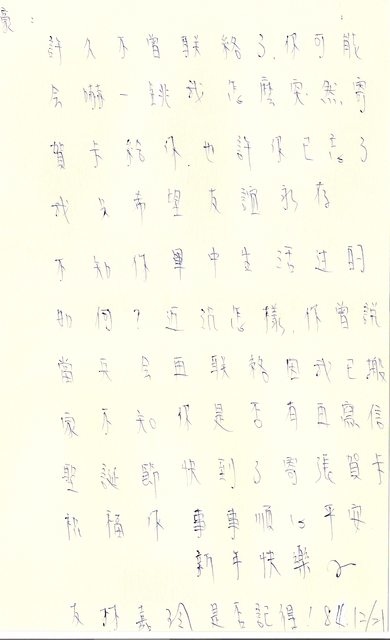 豪：
許久不曾联絡了，你可能
會嚇一跳我怎麼突然寄
賀卡給你，也許你已忘了
我只希望友誼永存
不知你軍中生活过的
如何？近況怎樣，你曾說
當兵会再联絡因我已搬
家不知你是否有再寫信
聖誕節快到了寄張賀卡
祝福你事事順心平安
新年快樂
友 林嘉玲 是否記得！84.12/21